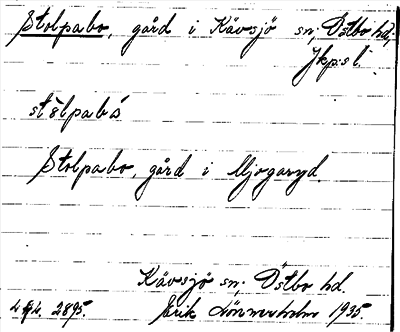 Stolpabo, gård i Kävsjö sn; Östbo hd;
Jkp:s l.
stålpabo
Stolpabo, gård i Mjogaryd.
Kävsjö sn; Östbo hd.
2895. Erik Lönnerholm 1935